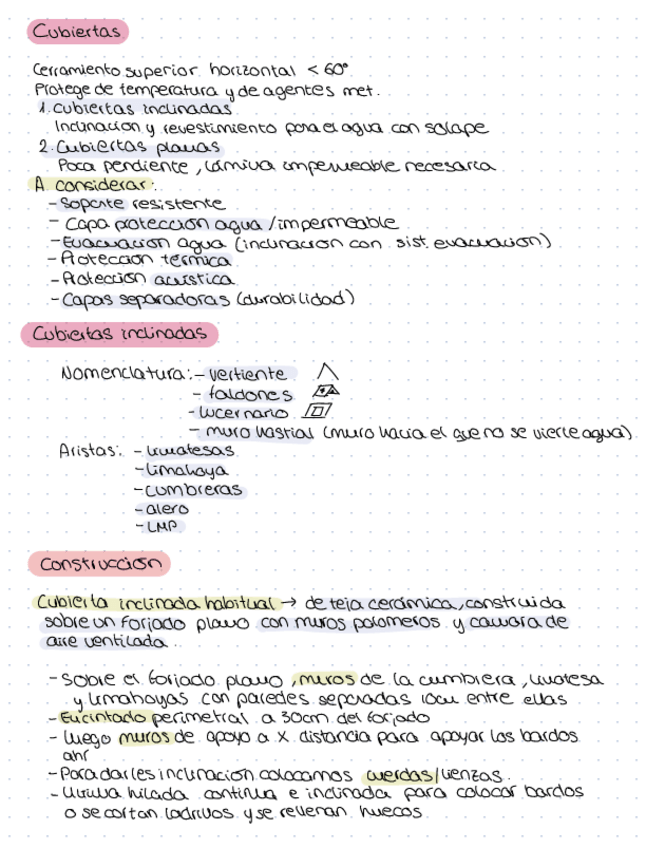 Cubiertas
Cerramiento superior horizontal < 60°
Protege de temperatura y de agentes met.
1. Cubiertas inclinadas
Inclinación y revestimiento para el agua con solape
2. Cubiertas planas
Poca pendiente, lámina impermeable necesaria
A considerar:
- Soporte resistente
- Capa protección agua / impermeable
- Evacuación agua (inclinación con sist. evacuación)
- Protección térmica
- Protección acústica
- Capas separadoras (durabilidad)
Cubiertas inclinadas
Nomenclatura: - vertiente
- faldones
- lucernario
- muro hastial (muro hacia el que no se vierte agua)
Aristas: - limatesas
- limahoya
- cumbreras
- alero
- LMP
Construcción
Cubierta inclinada habitual → de teja cerámica, construida
sobre un forjado plano con muros palomeros y cámara de
aire ventilada.
- Sobre el forjado plano, muros de la cumbrera, limatesa
y limahoyas con paredes separadas 10cm entre ellas
- Encintado perimetral a 30cm del forjado
- Luego muros de apoyo a x distancia para apoyar los bardos
ahí
- Para darles inclinación colocamos cuerdas/lienzas.
- Última hilada continua e inclinada para colocar bardos
o se cortan ladrillos y se rellenan huecos